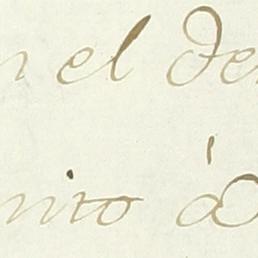 n el de
nito à